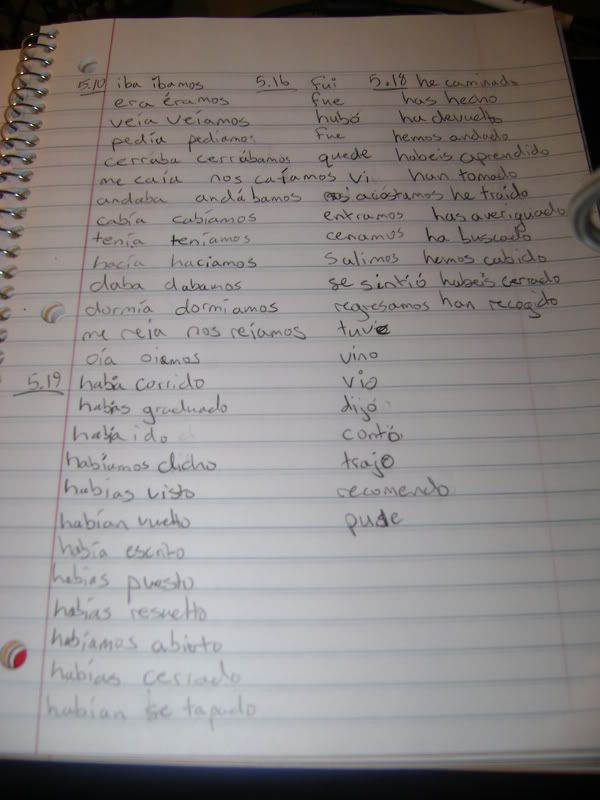 5.10 iba íbamos 5.16 fui 5.18 he caminado
era éramos fue has hecho
veía veíamos hubó ha devuelto
pedía pedíamos fue hemos andado
cerraba cerrábamos quede habeis aprendido
me caía nos caíamos vi han tomado
andaba andábamos nos acostamos he traído
cabía cabíamos entramos has averiguado
tenía teníamos cenamos ha buscado
hacía haciamos salimos hemos cabido
daba dabamos se sintió habeis cerrado
dormía dormíamos regresamos han recogido
me reía nos reíamos tuve
oía oiamos vino
5.19 había corrido vio
habías graduado dijó
había ido contó
habíamos dicho trajo
habías visto recomendo
habían vuelto pude
había escrito
habías puesto
habías resuelto
habíamos abierto
habías cerrado
habían se tapado